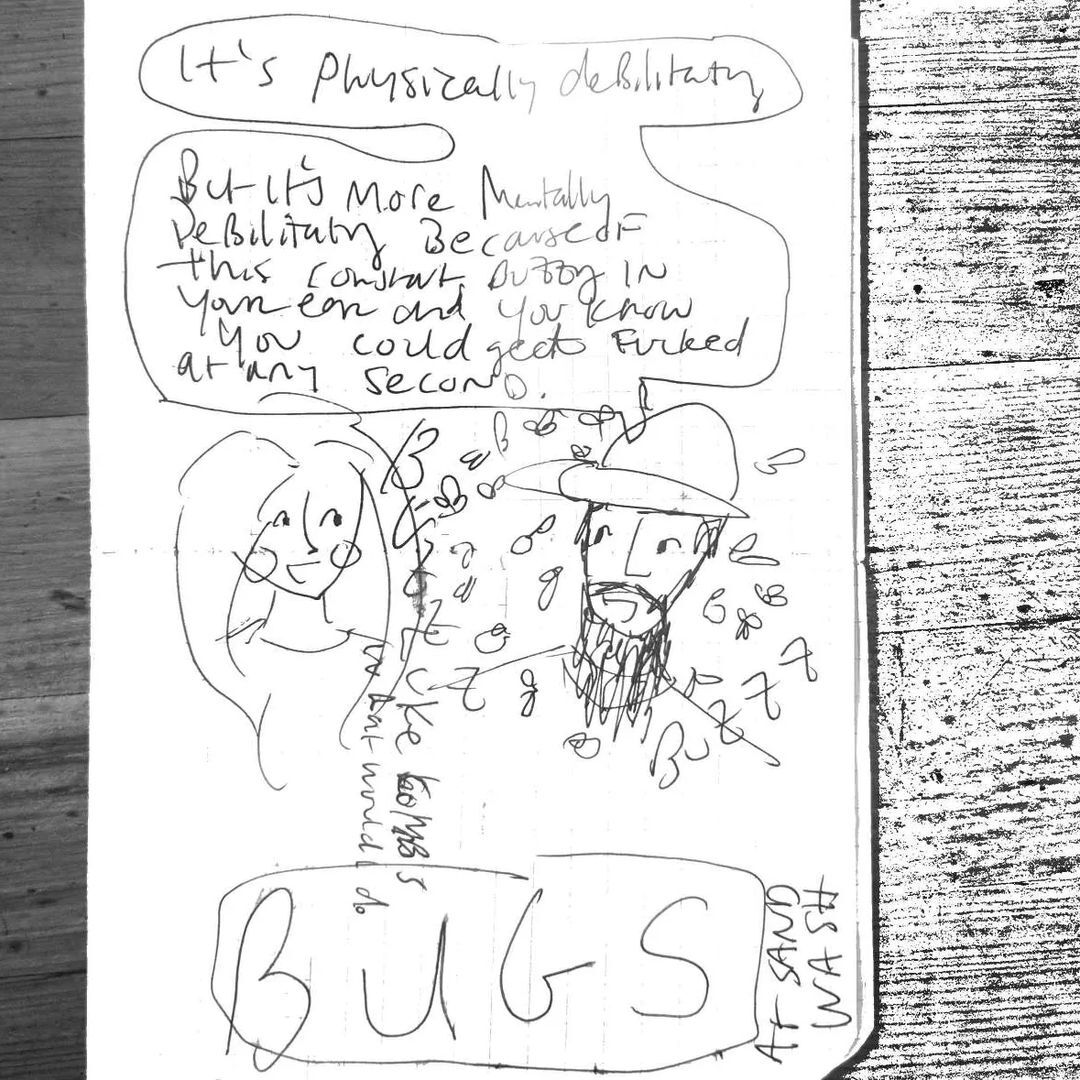 It's Physically debilitatng
But It's More Mentally
Debilitatng Because of
this constant Buzzng IN
Your ear and you know
You could geet Fucked
at any second.
Like bombs
that would do
BUGS
AT SAND
WASH